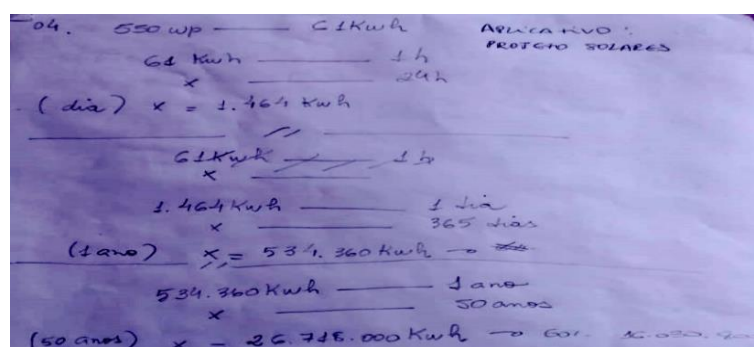 04. 550 wp —— 61Kwh APLICATIVO:
PROJETO SOLARES
61 Kwh —— 1h
x —— 24h
(dia) x = 1.464 Kwh
61Kwh —— 1h
x ——
1.464 Kwh —— 1 dia
x —— 365 dias
(1 ano) x = 534.360 Kwh →
534.360 Kwh —— 1 ano
x —— 50 anos
(50 anos) x = 26.718.000 Kwh →